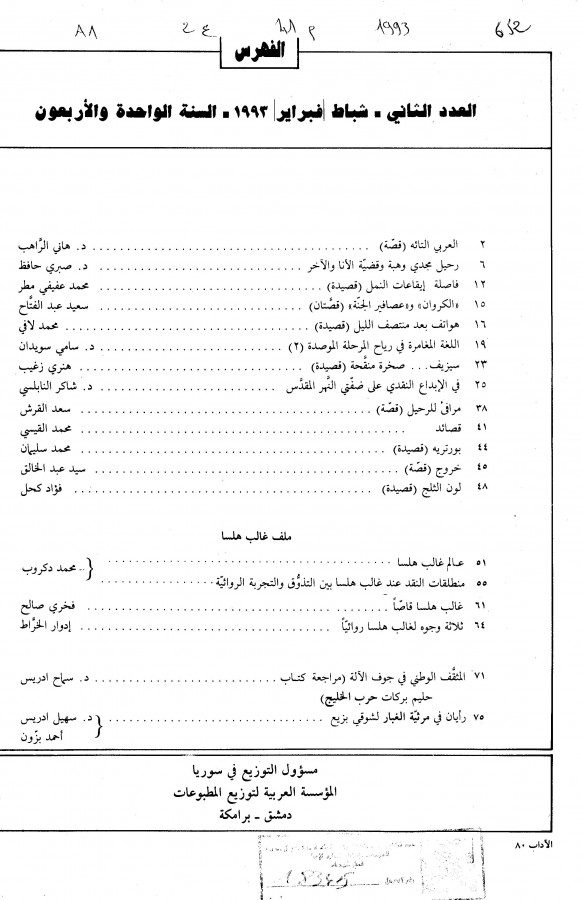 1993
652
الفهرس
العدد الثاني ـ شباط | فبراير | ١٩٩٣ ـ السنة الواحدة والأربعون
٢ العربي التائه (قصّة) د. هاني الرَّاهب
٦ رحيل مجدي وهبة وقضيّة الأنا والآخر د. صبري حافظ
١٢ فاصلة إيقاعات النمل (قصيدة) محمد عفيفي مطر
١٥ «الكروان» و«عصافير الجنّة» (قصّتان) سعيد عبد الفتَّاح
١٦ هواتف بعد منتصف الليل (قصيدة) محمد لافي
١٩ اللغة المغامرة في رياح المرحلة الموصدة (٢) د. سامي سويدان
٢٣ سيزيف... صخرة منقَّحة (قصيدة) هنري زغيب
٢٥ في الإبداع النقدي على ضفّتي النَّهر المقدَّس د. شاكر النابلسي
٣٨ مرافئ للرحيل (قصّة) سعد القرش
٤١ قصائد محمد القيسي
٤٤ بورتريه (قصيدة) محمد سليمان
٤٥ خروج (قصّة) سيد عبد الخالق
٤٨ لون الثلج (قصيدة) فؤاد كحل
ملف غالب هلسا
٥١ عالم غالب هلسا
محمد دكروب
٥٥ منطلقات النقد عند غالب هلسا بين التذوُّق والتجربة الروائيّة
٦١ غالب هلسا قاصّاً فخري صالح
٦٤ ثلاثة وجوه لغالب هلسا روائيّاً إدوار الخرَّاط
٧١ المثقَّف الوطني في جوف الآلة (مراجعة كتاب د. سماح ادريس
حليم بركات حرب الخليج)
٧٥ رأيان في مرثيّة الغبار لشوقي بزيع د. سهيل ادريس
أحمد بزّون
مسؤول التوزيع في سوريا
المؤسسة العربية لتوزيع المطبوعات
دمشق ـ برامكة
الآداب ٨٠